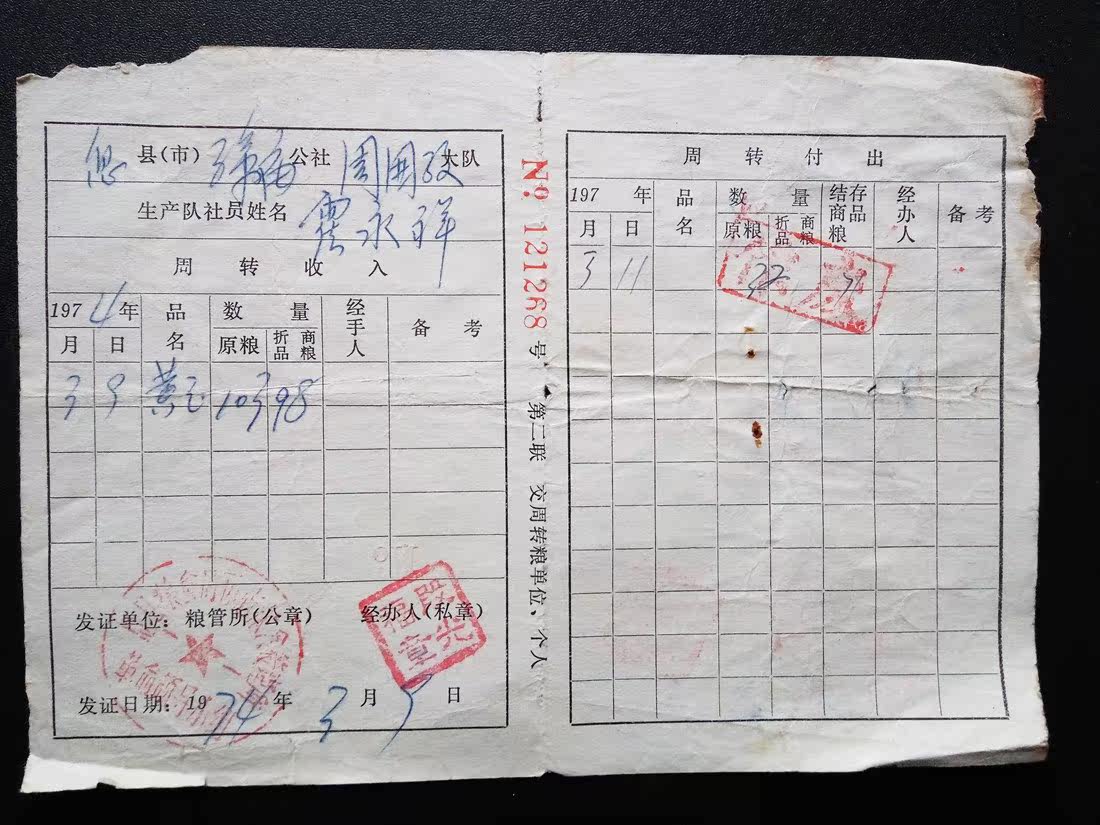 息 县(市) 公社 周围孜 大队
生产队社员姓名 永祥
周转收入
1974年 品名 数量 经手人 备考
月 日 原粮 折商品粮
3 9 黄豆 103 98
发证单位：粮管所(公章) 经办人(私章)
发证日期：1974年3月9日
№ 121268 号
第二联 交周转粮单位、个人
周转付出
197 年 品名 数量 结存商品粮 经办人 备考
月 日 原粮 折商品粮
3 11